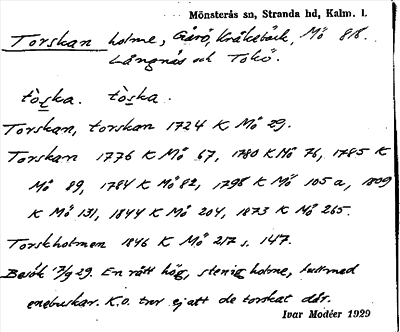 Mönsterås sn, Stranda hd, Kalm. l.
Torskan holme, Gårö, Kråkebäck, Mö 816.
Långnäs och Tokö.
tòska. tòska.
Torskan, torskan 1724 K Mö 29.
Torskan 1776 K Mö 67, 1780 K Mö 76, 1785 K
Mö 89, 1784 K Mö 82, 1798 K Mö 105 a, 1809
K Mö 131, 1844 K Mö 204, 1873 K Mö 265.
Torskholmen 1846 K Mö 217 s. 147.
Besök 17/9 29. En rätt hög, stenig holme, full med
enebuskar. K.O. tror ej att de torskat där.
Ivar Modéer 1929